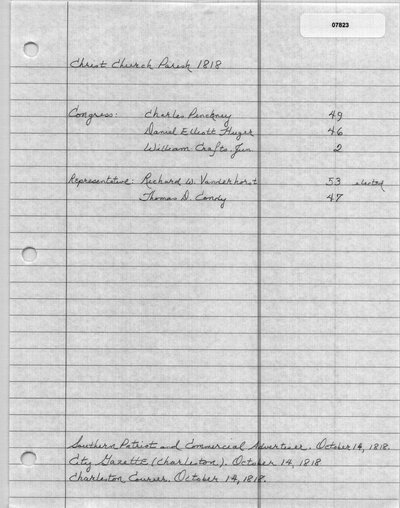 07823
Christ Church Parish 1818
Congress: Charles Pinckney 49
Daniel Elliott Huger 46
William Crafts Jun 2
Representative: Richard W. Vanderhorst 53 elected
Thomas D. Condy 47
Southern Patriot and Commercial Advertiser. October 14, 1818.
City Gazette (Charleston). October 14, 1818
Charleston Courier. October 14, 1818.